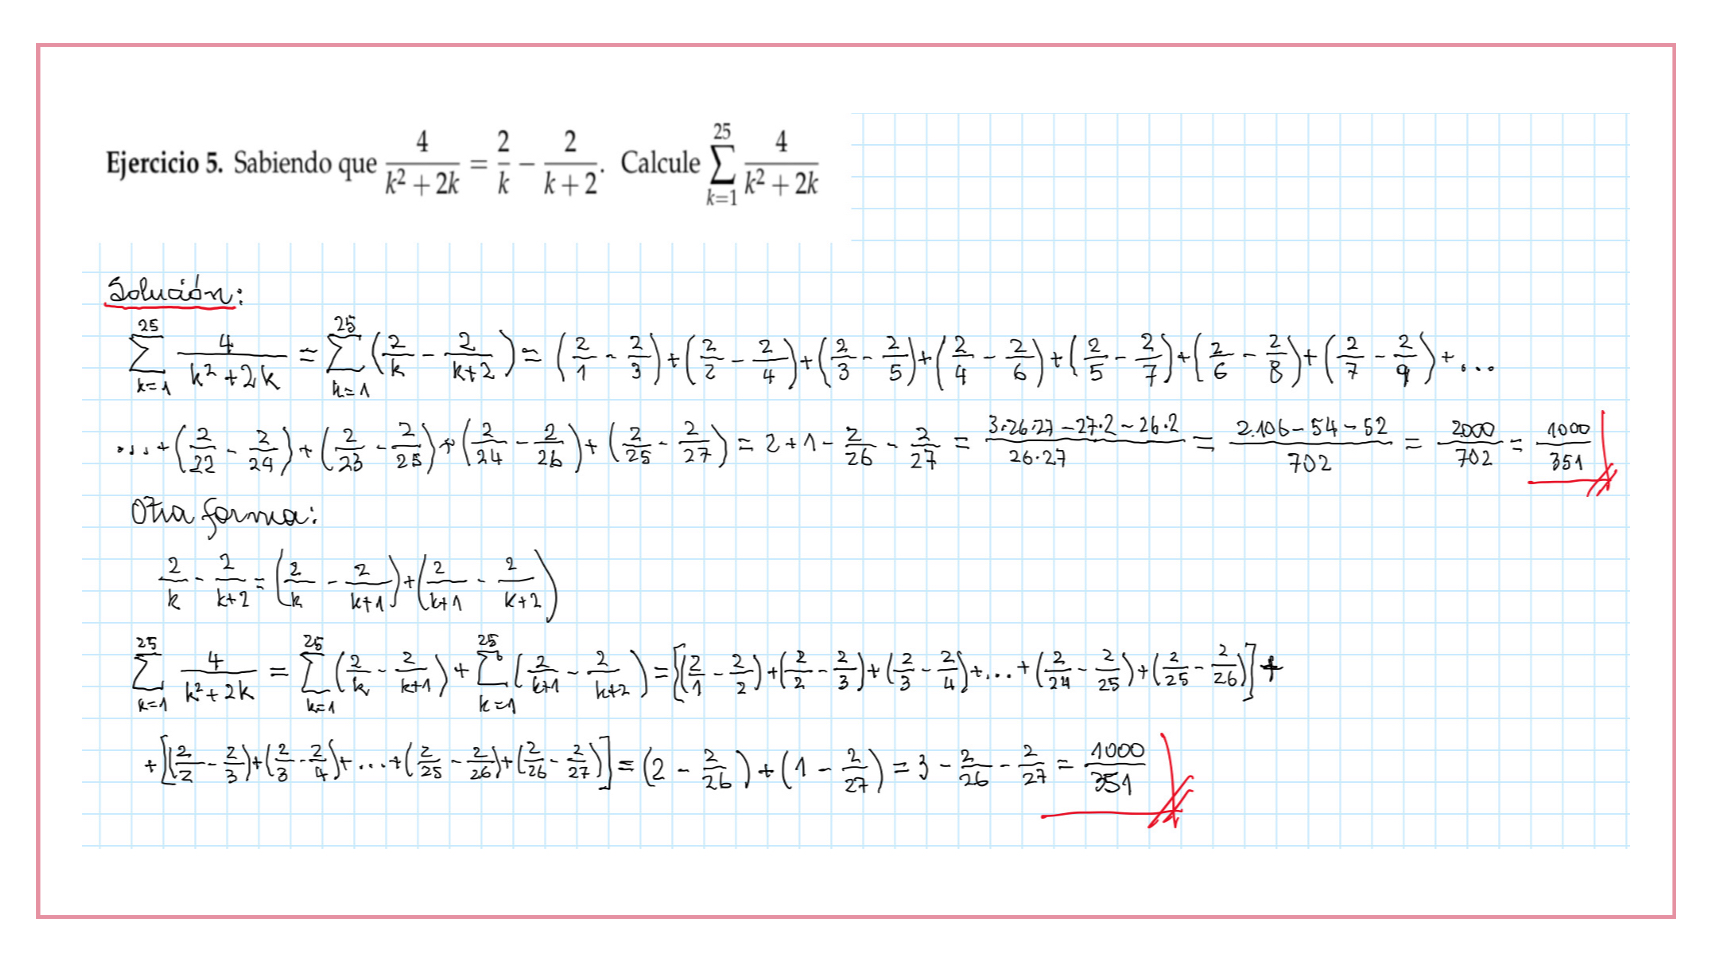 Ejercicio 5. Sabiendo que \frac{4}{k^2+2k} = \frac{2}{k} - \frac{2}{k+2}. Calcule \sum_{k=1}^{25} \frac{4}{k^2+2k}
Solución:
\sum_{k=1}^{25} \frac{4}{k^2+2k} = \sum_{k=1}^{25} (\frac{2}{k} - \frac{2}{k+2}) = (\frac{2}{1} - \frac{2}{3}) + (\frac{2}{2} - \frac{2}{4}) + (\frac{2}{3} - \frac{2}{5}) + (\frac{2}{4} - \frac{2}{6}) + (\frac{2}{5} - \frac{2}{7}) + (\frac{2}{6} - \frac{2}{8}) + (\frac{2}{7} - \frac{2}{9}) + ...
... + (\frac{2}{22} - \frac{2}{24}) + (\frac{2}{23} - \frac{2}{25}) + (\frac{2}{24} - \frac{2}{26}) + (\frac{2}{25} - \frac{2}{27}) = 2 + 1 - \frac{2}{26} - \frac{2}{27} = \frac{3·26·27 - 27·2 - 26·2}{26·27} = \frac{2.106 - 54 - 52}{702} = \frac{2000}{702} = \frac{1000}{351}
Otra forma:
\frac{2}{k} - \frac{2}{k+2} = (\frac{2}{k} - \frac{2}{k+1}) + (\frac{2}{k+1} - \frac{2}{k+2})
\sum_{k=1}^{25} \frac{4}{k^2+2k} = \sum_{k=1}^{25} (\frac{2}{k} - \frac{2}{k+1}) + \sum_{k=1}^{25} (\frac{2}{k+1} - \frac{2}{k+2}) = [(\frac{2}{1} - \frac{2}{2}) + (\frac{2}{2} - \frac{2}{3}) + (\frac{2}{3} - \frac{2}{4}) + ... + (\frac{2}{24} - \frac{2}{25}) + (\frac{2}{25} - \frac{2}{26})] +
+ [(\frac{2}{2} - \frac{2}{3}) + (\frac{2}{3} - \frac{2}{4}) + ... + (\frac{2}{25} - \frac{2}{26}) + (\frac{2}{26} - \frac{2}{27})] = (2 - \frac{2}{26}) + (1 - \frac{2}{27}) = 3 - \frac{2}{26} - \frac{2}{27} = \frac{1000}{351}